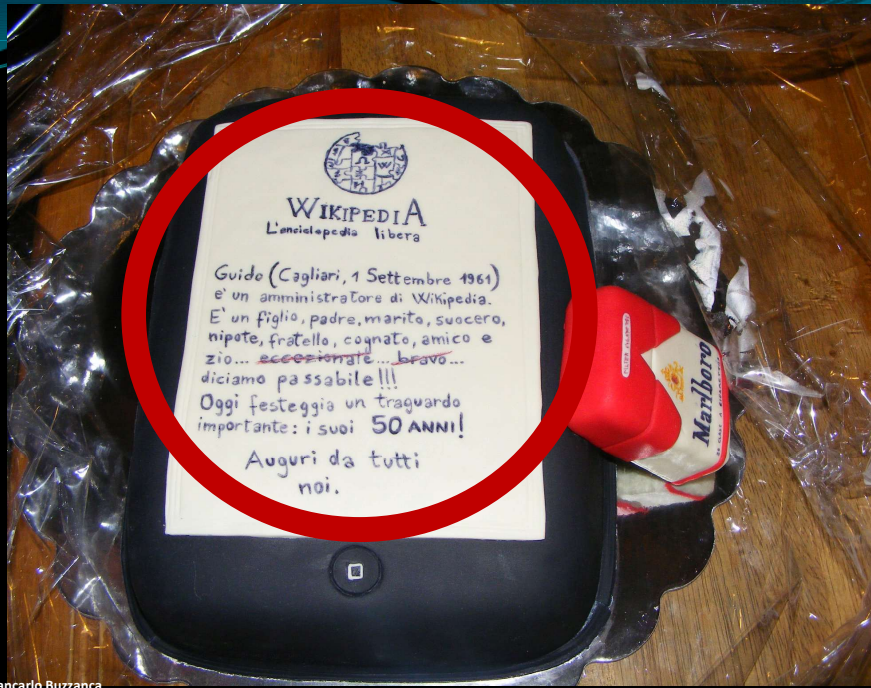 WIKIPEDIA
L'enciclopedia libera
Guido (Cagliari, 1 Settembre 1961)
e' un amministratore di Wikipedia.
E' un figlio, padre, marito, suocero,
nipote, fratello, cognato, amico e
zio... eccezionale... bravo...
diciamo passabile!!!
Oggi festeggia un traguardo
importante: i suoi 50 ANNI!
Auguri da tutti
noi.
Marlboro
ancarlo Buzzanca